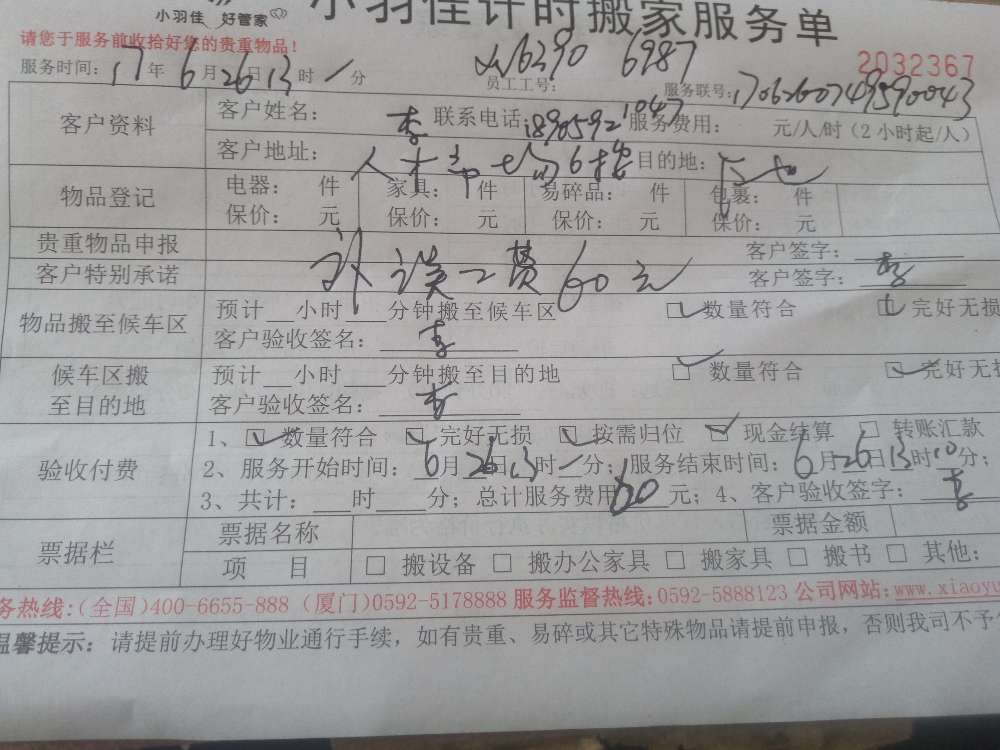 小羽佳 好管家
小羽佳计时搬家服务单
请您于服务前收拾好您的贵重物品!
2032367
服务时间: 17年6月26日13时 分 员工工号: 6290 6987 服务联号: 17062600749590043
客户资料 客户姓名: 李 联系电话: 18905921047 服务费用: 元/人/时(2小时起/人)
客户地址: 目的地:
物品登记 电器: 件 家具: 件 易碎品: 件 包裹: 件
保价: 元 保价: 元 保价: 元 保价: 元
贵重物品申报 客户签字:
客户特别承诺 补误工费60元 客户签字: 李
物品搬至候车区 预计__小时__分钟搬至候车区 数量符合 完好无损
客户验收签名: 李
候车区搬至目的地 预计__小时__分钟搬至目的地 数量符合 完好无损
客户验收签名: 李
验收付费 1、数量符合 完好无损 按需归位 现金结算 转账汇款
2、服务开始时间: 6月26日13时 分; 服务结束时间: 6月26日13时10分;
3、共计: __时__分; 总计服务费用60元; 4、客户验收签字: 李
票据栏 票据名称 票据金额
项 目 搬设备 搬办公家具 搬家具 搬书 其他:
务热线:(全国)400-6655-888 (厦门)0592-5178888 服务监督热线:0592-5888123 公司网站:www.xiaoyu
温馨提示: 请提前办理好物业通行手续, 如有贵重、易碎或其它特殊物品请提前申报, 否则我司不予